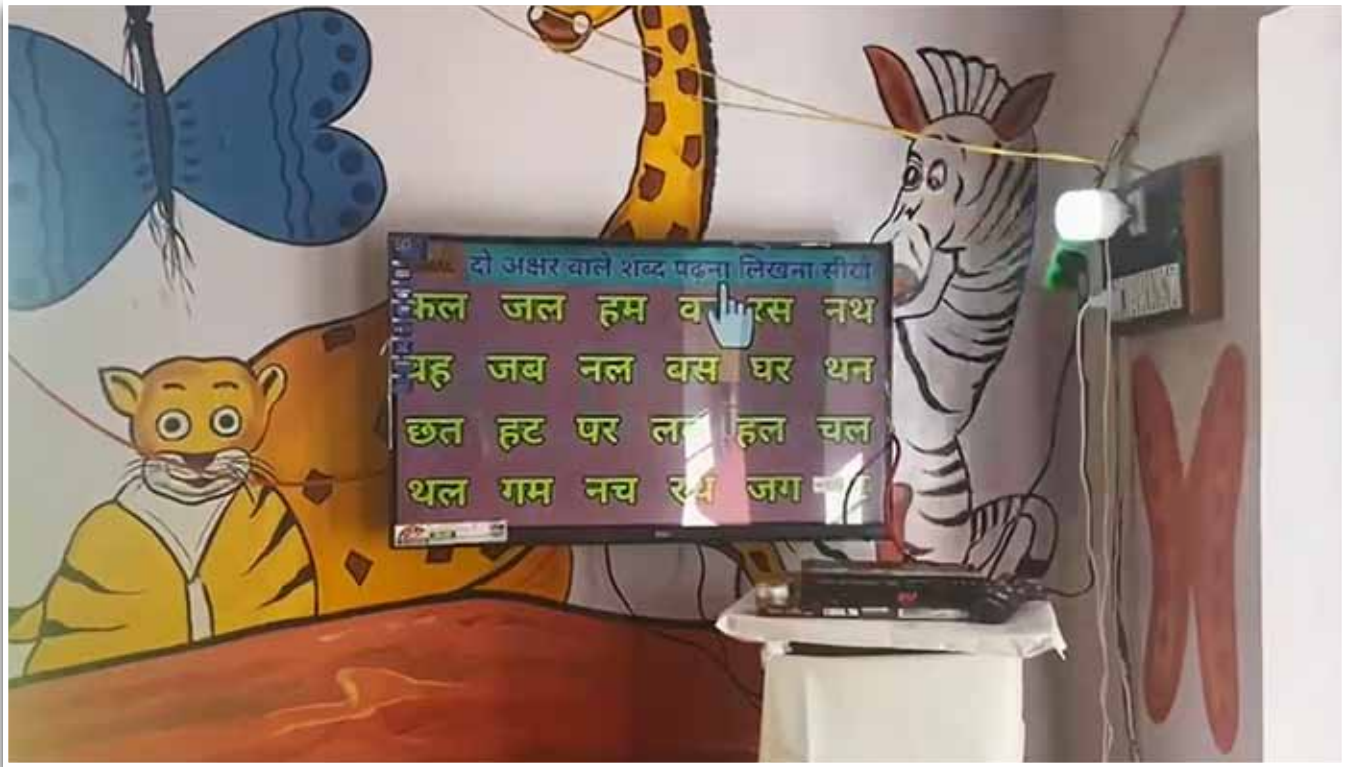 दो अक्षर वाले शब्द पढना लिखना सीखो
कल जल हम रस नथ
यह जब नल बस घर थन
छत हट पर हल चल
थल गम नच रथ जग